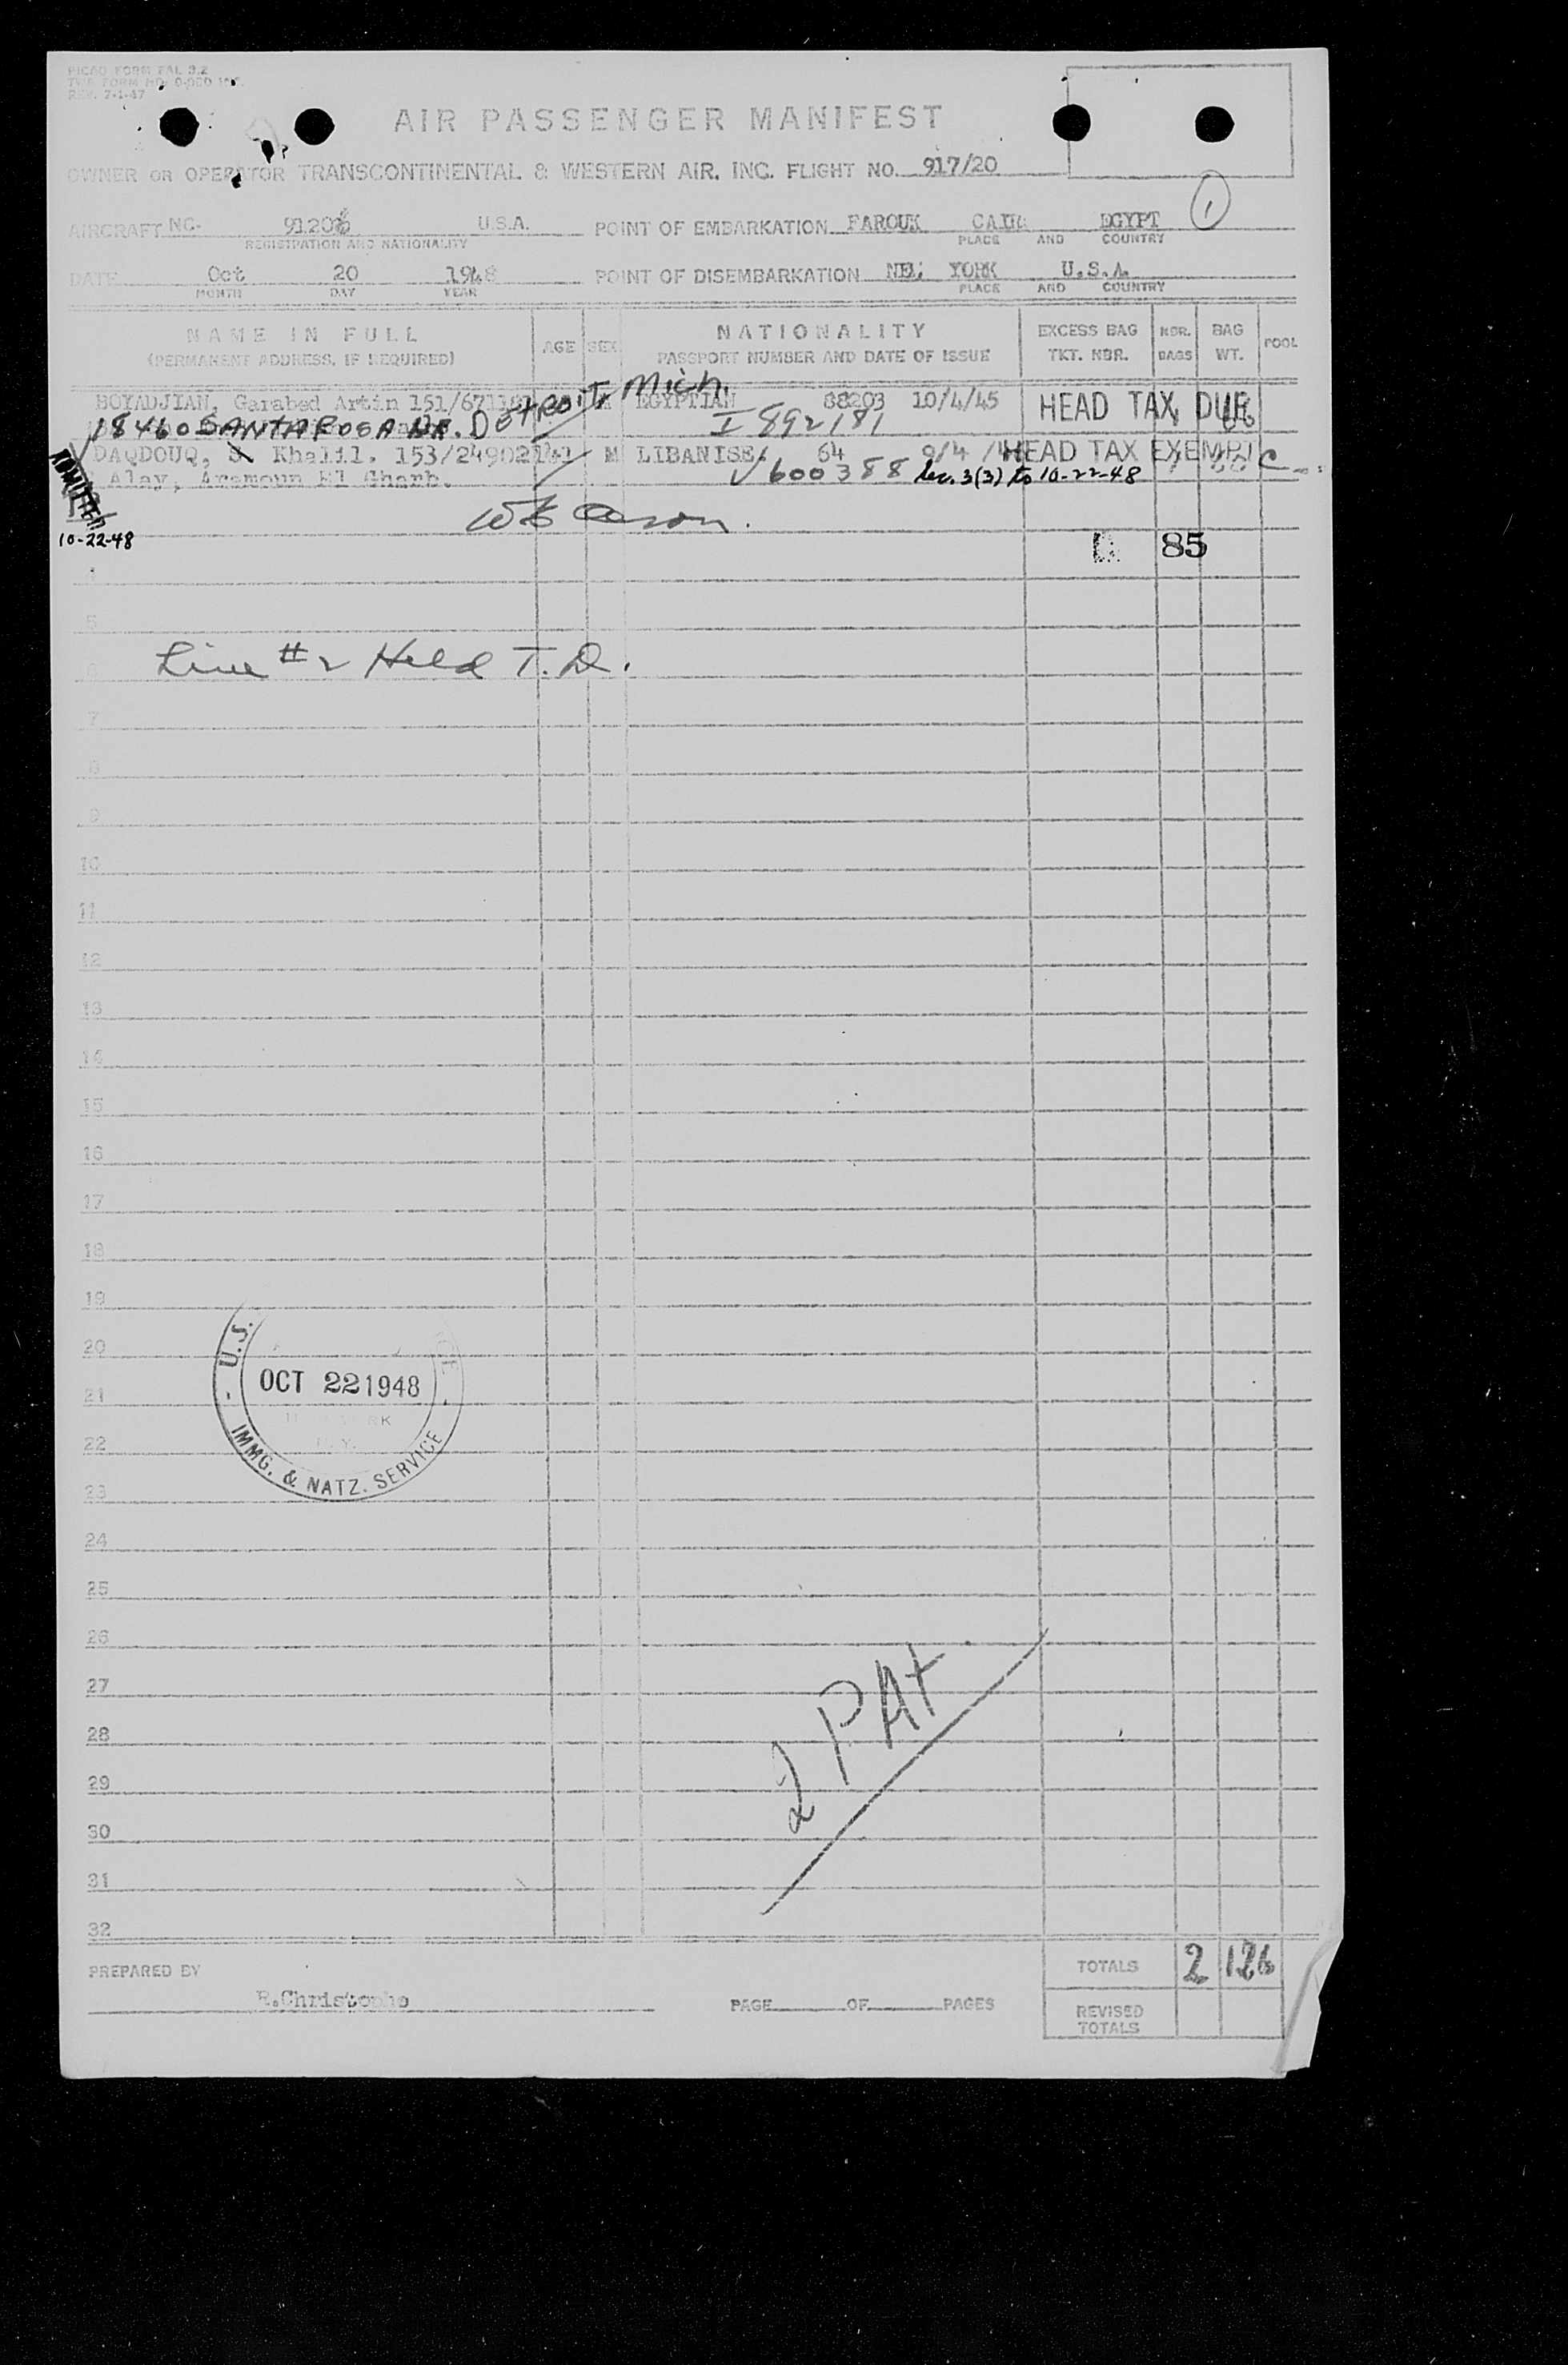 PICAO FORM FAL 3.2
REV. 7-1-47
AIR PASSENGER MANIFEST
OWNER OR OPERATOR TRANSCONTINENTAL & WESTERN AIR, INC. FLIGHT NO. 917/20
1
AIRCRAFT NC- U.S.A. POINT OF EMBARKATION FAROUK CAIRO EGYPT
REGISTRATION AND NATIONALITY PLACE AND COUNTRY
DATE Oct 20 1948 POINT OF DISEMBARKATION NEW YORK U.S.A.
MONTH DAY YEAR PLACE AND COUNTRY
NAME IN FULL AGE SEX NATIONALITY EXCESS BAG NBR. BAG POOL
(PERMANENT ADDRESS, IF REQUIRED) PASSPORT NUMBER AND DATE OF ISSUE TKT. NBR. BAGS WT.
BOYADJIAN, Garabed Artin EGYPTIAN 88203 10/4/45 HEAD TAX DUE
18460 SANTA ROSA DR. DETROIT, Mich. I 892181
DAQDOUQ, Khalil. 153/24902 M LIBANISE 64 HEAD TAX EXEMPT
Alay, Aramoun El Gharb. V600388 Sec. 3(3) to 10-22-48
ADMITTED
10-22-48
85
5
Line #2 Held T.D.
6
7
8
9
10
11
12
13
14
15
16
17
18
19
20
21
22
23
24
25
26
27
28
29
30
31
32
U.S.
OCT 22 1948
IMMG. & NATZ. SERVICE
2 PAX
TOTALS 2 126
PREPARED BY
R.Christophe PAGE OF PAGES
REVISED
TOTALS